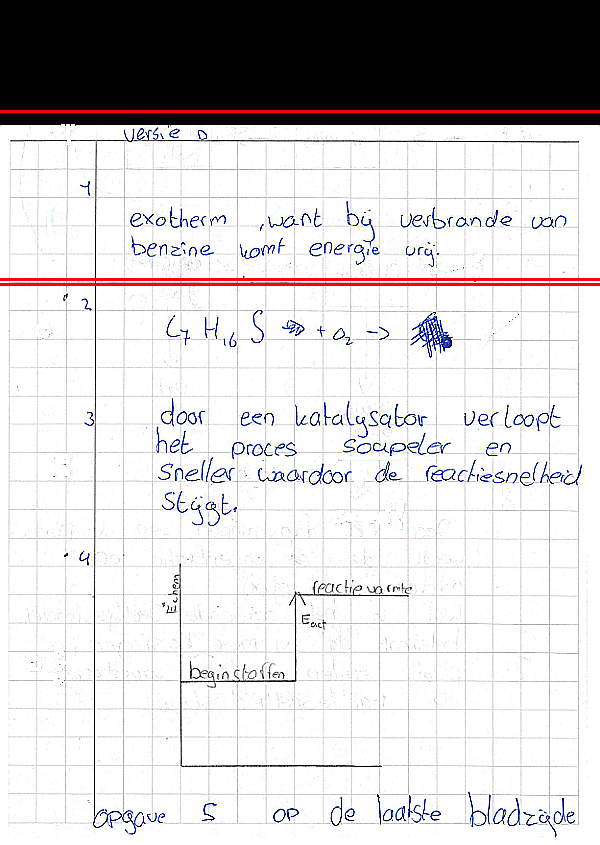 versie D
1
exotherm, want bij verbrande van
benzine komt energie vrij.
2
C₇ H₁₆ S + O₂ ->
3 door een katalysator verloopt
het proces soupeler en
sneller waardoor de reactiesnelheid
stijgt.
4
Echem
reactiewarmte
Eact
beginstoffen
opgave 5 op de laatste bladzijde